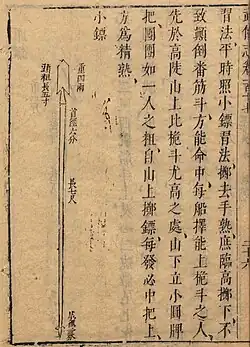 習法平時照小鏢習法擲去手熟庶臨高擲下不
致顛倒番筋斗方能命中每船擇能上桅斗之人
先於高陡山上比桅斗尤高之處山下立小圓牌
把團團如一人之粗自山上擲鏢每發必中把上
方為精熟
小鏢
重四兩
首徑六分
頭粗長五寸
長七尺